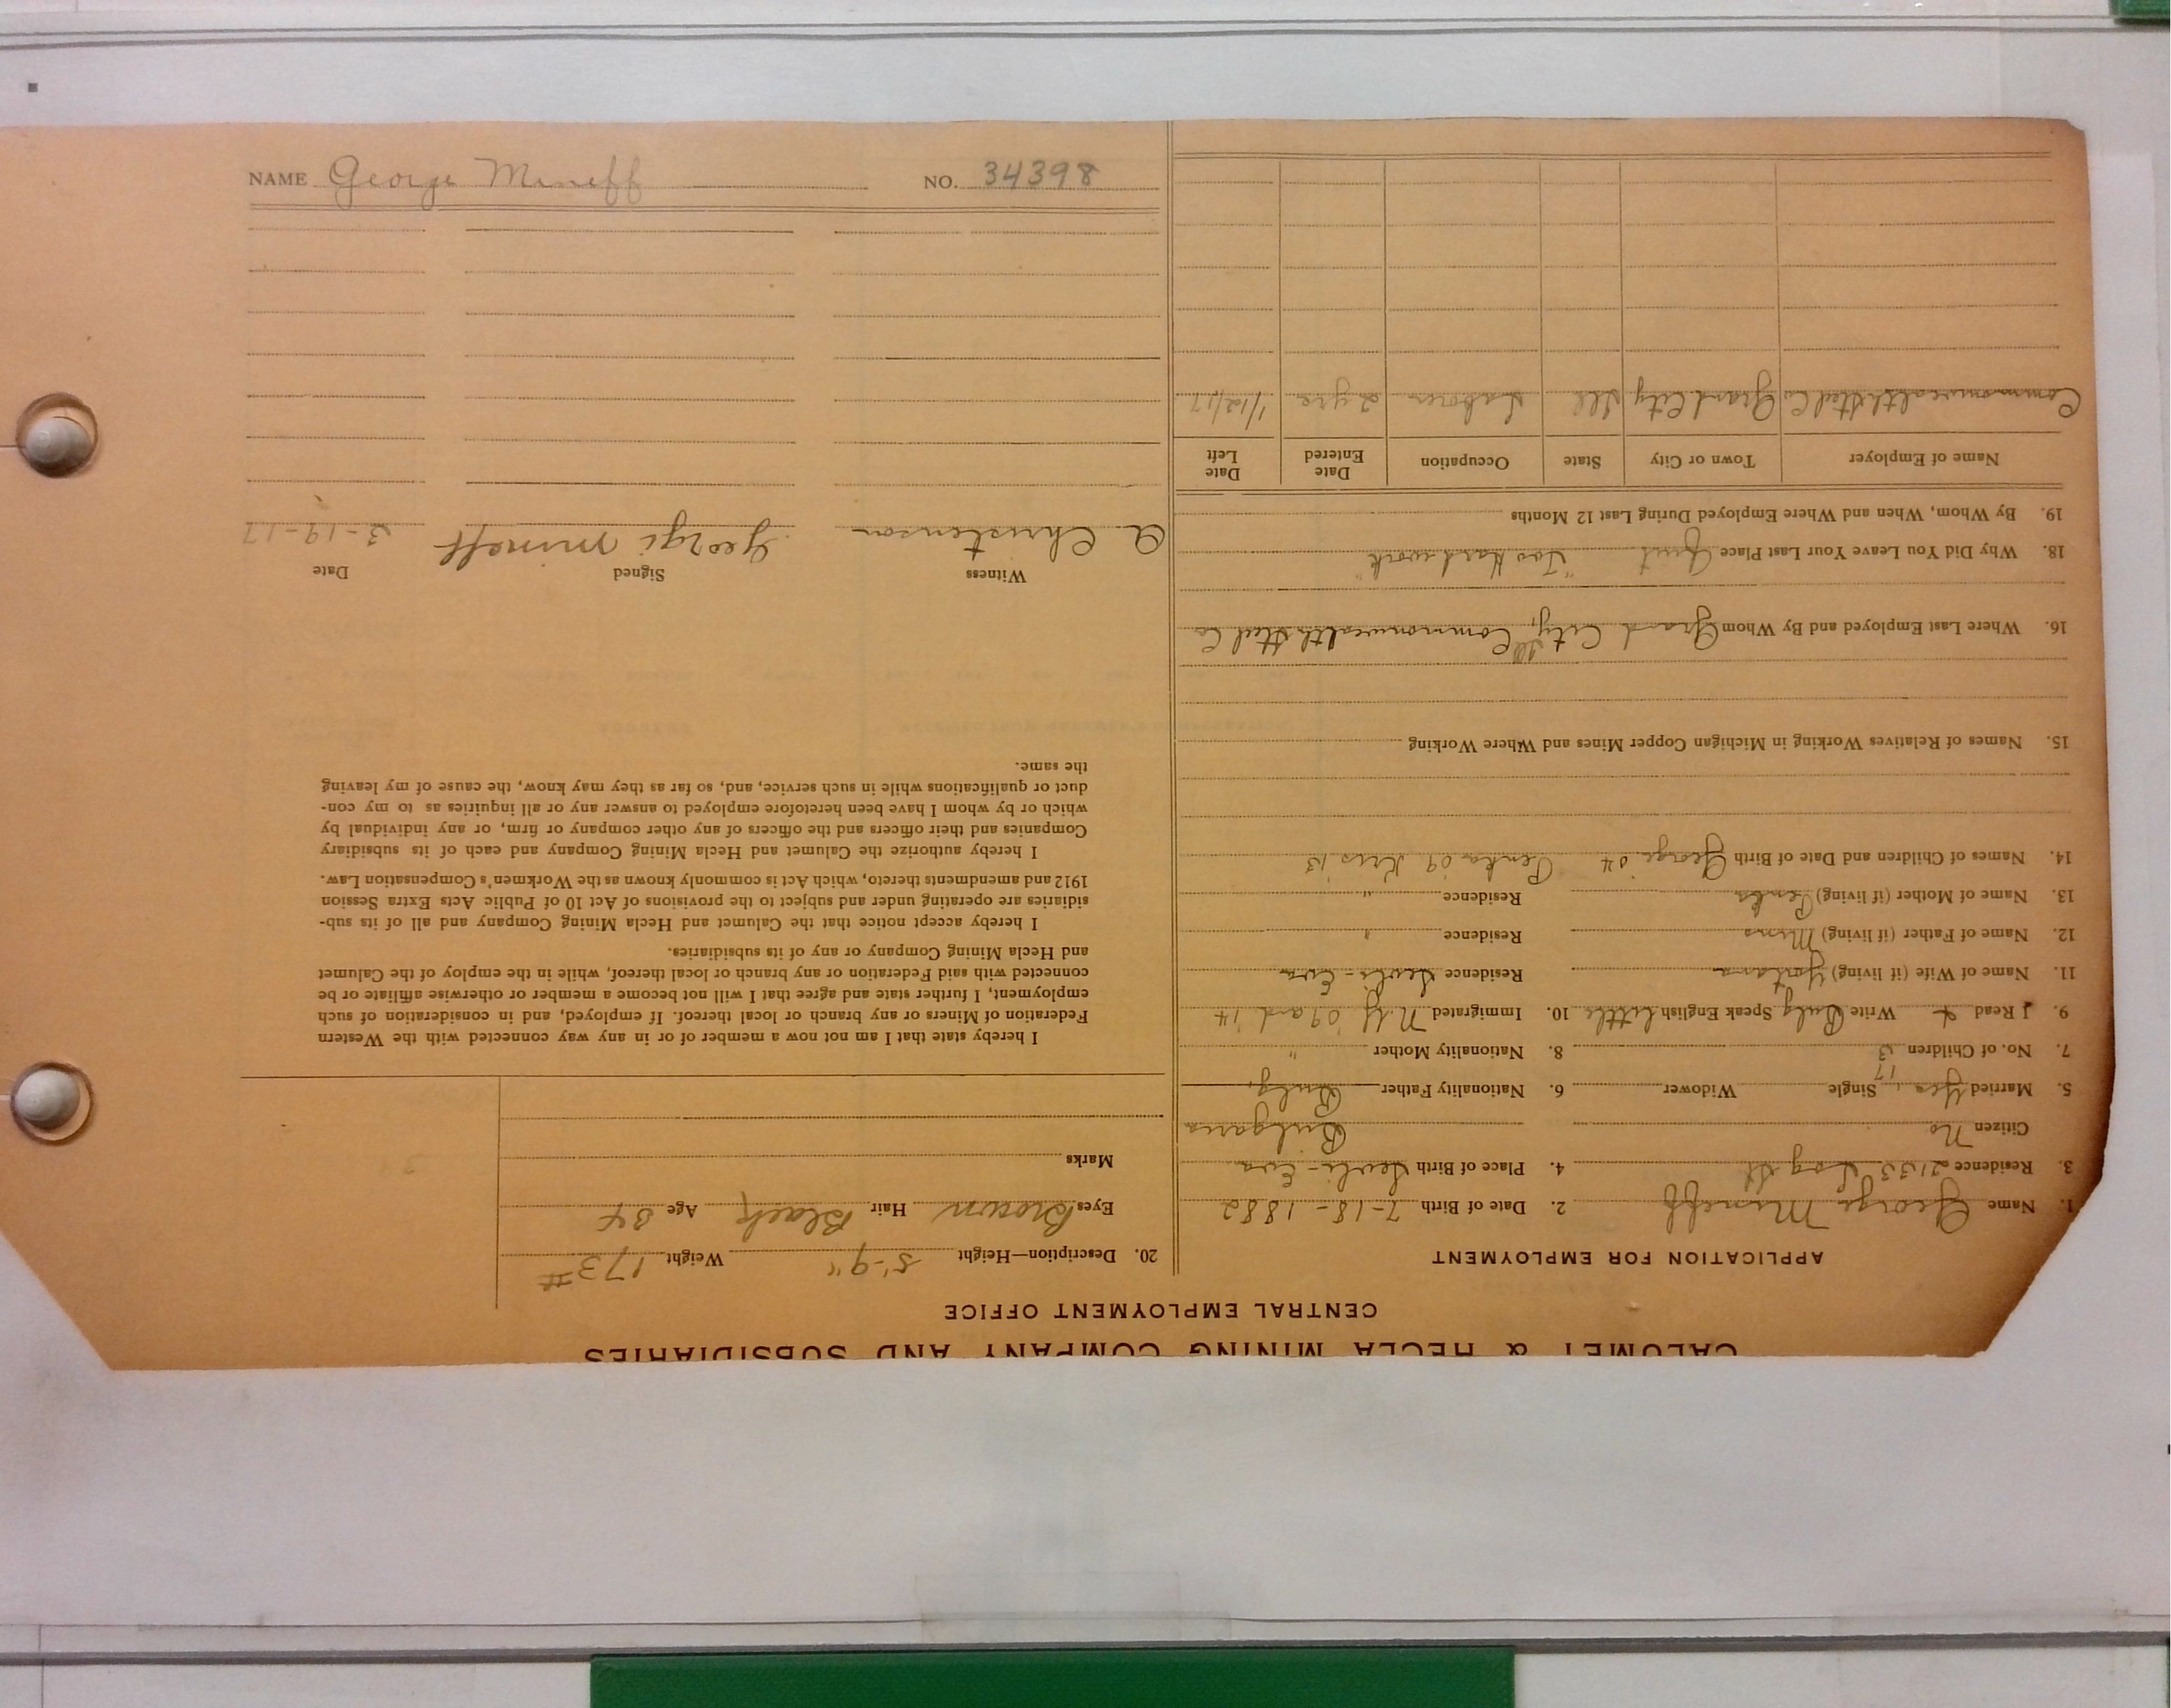 CALUMET & HECLA MINING COMPANY AND SUBSIDIARIES
CENTRAL EMPLOYMENT OFFICE
APPLICATION FOR EMPLOYMENT
1. Name George Mineff 2. Date of Birth 7-18-1882
3. Residence 2133 Log St 4. Place of Birth Sevli-Evo
Citizen No Bulgaria
5. Married Yes 17 Single Widower 6. Nationality Father Bulg.
7. No. of Children 3 8. Nationality Mother "
9. Read & Write Bulg Speak English little 10. Immigrated N.Y. '09 and '14
11. Name of Wife (if living) Residence Sevli-Evo
12. Name of Father (if living) Mino Residence "
13. Name of Mother (if living) Penka Residence "
14. Names of Children and Date of Birth George '04 Penka '09 Kris '13
15. Names of Relatives Working in Michigan Copper Mines and Where Working
16. Where Last Employed and By Whom Grand City, Ill Commonwealth Steel Co
18. Why Did You Leave Your Last Place Quit "Too Hard work"
19. By Whom, When and Where Employed During Last 12 Months
Name of Employer Town or City State Occupation Date Entered Date Left
Commonwealth Steel Co Grand City Ill Laborer 2 yrs 1/12/17
20. Description—Height 5'-9" Weight 173#
Eyes Brown Hair Black Age 34
Marks
I hereby state that I am not now a member of or in any way connected with the Western
Federation of Miners or any branch or local thereof. If employed, and in consideration of such
employment, I further state and agree that I will not become a member or otherwise affiliate or be
connected with said Federation or any branch or local thereof, while in the employ of the Calumet
and Hecla Mining Company or any of its subsidiaries.
I hereby accept notice that the Calumet and Hecla Mining Company and all of its sub-
sidiaries are operating under and subject to the provisions of Act 10 of Public Acts Extra Session
1912 and amendments thereto, which Act is commonly known as the Workmen's Compensation Law.
I hereby authorize the Calumet and Hecla Mining Company and each of its subsidiary
Companies and their officers and the officers of any other company or firm, or any individual by
which or by whom I have been heretofore employed to answer any or all inquiries as to my con-
duct or qualifications while in such service, and, so far as they may know, the cause of my leaving
the same.
Witness Signed Date
A. Christenson Georgi Mineff 3-19-17
NAME George Mineff NO. 34398